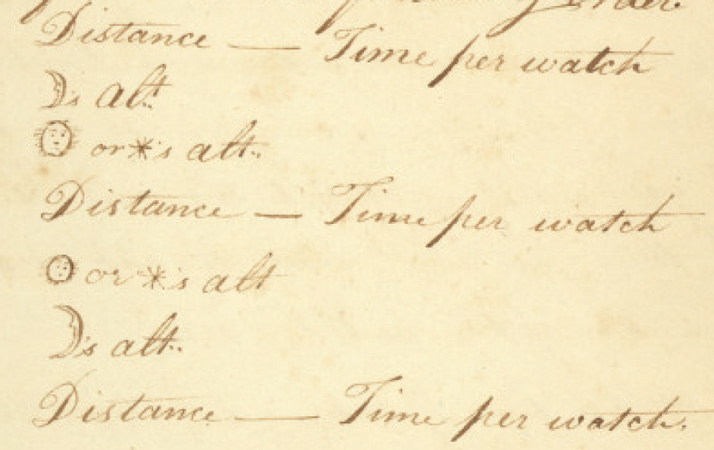 Order
Distance — Time per watch
☽'s alt.
☉ or *'s alt.
Distance — Time per watch
☉ or *'s alt
☽'s alt.
Distance — Time per watch.